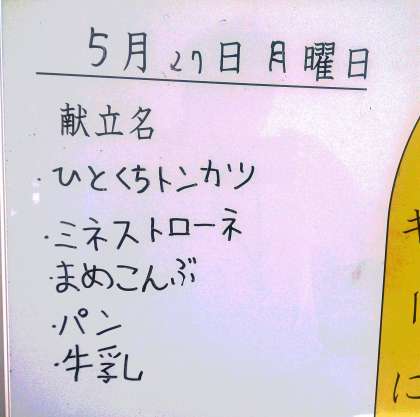 5月27日月曜日
献立名
・ひとくちトンカツ
・ミネストローネ
・まめこんぶ
・パン
・牛乳
に